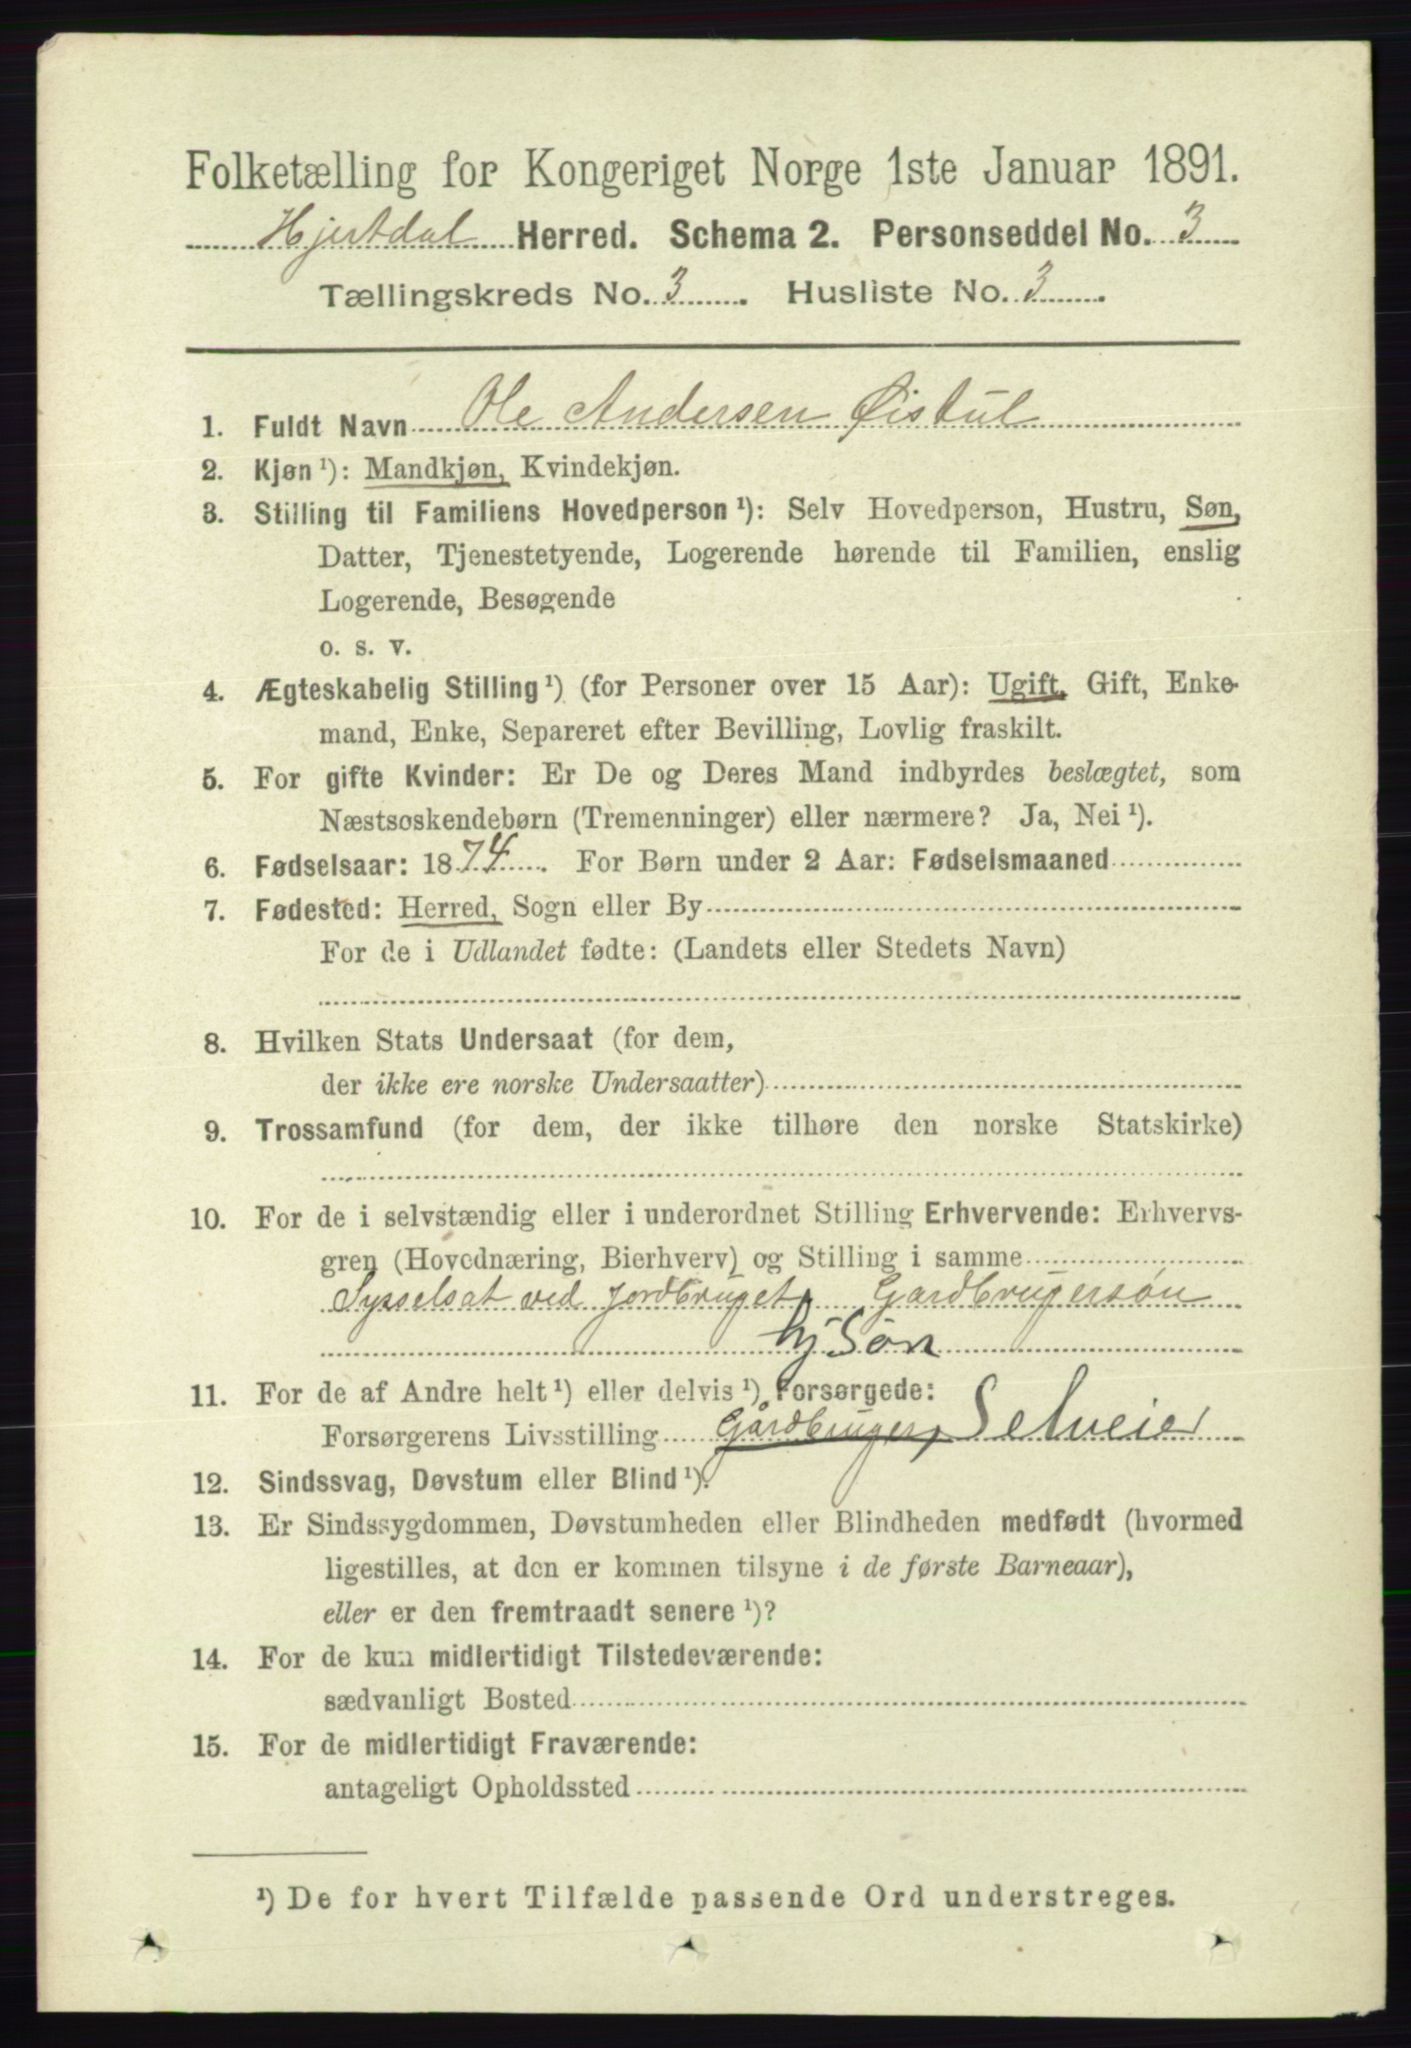 Folketælling for Kongeriget Norge 1ste Januar 1891.
Hjertdal Herred. Schema 2. Personseddel No. 3
Tællingskreds No. 3. Husliste No. 3.
1. Fuldt Navn Ole Andersen Øistul
2. Kjøn ¹): Mandkjøn, Kvindekjøn.
3. Stilling til Familiens Hovedperson ¹): Selv Hovedperson, Hustru, Søn,
Datter, Tjenestetyende, Logerende hørende til Familien, enslig
Logerende, Besøgende
o. s. v.
4. Ægteskabelig Stilling ¹) (for Personer over 15 Aar): Ugift, Gift, Enke-
mand, Enke, Separeret efter Bevilling, Lovlig fraskilt.
5. For gifte Kvinder: Er De og Deres Mand indbyrdes beslægtet, som
Næstsøskendebørn (Tremenninger) eller nærmere? Ja, Nei ¹).
6. Fødselsaar: 1874. For Børn under 2 Aar: Fødselsmaaned
7. Fødested: Herred, Sogn eller By
For de i Udlandet fødte: (Landets eller Stedets Navn)
8. Hvilken Stats Undersaat (for dem,
der ikke ere norske Undersaatter)
9. Trossamfund (for dem, der ikke tilhøre den norske Statskirke)
10. For de i selvstændig eller i underordnet Stilling Erhvervende: Erhvervs-
gren (Hovednæring, Bierhverv) og Stilling i samme
Sysselsat ved jordbruget, Gardbrugersøn
hj Søn
11. For de af Andre helt ¹) eller delvis ¹) Forsørgede:
Forsørgerens Livsstilling Gårdbruger, Selveier
12. Sindssvag, Døvstum eller Blind ¹).
13. Er Sindssygdommen, Døvstumheden eller Blindheden medfødt (hvormed
ligestilles, at den er kommen tilsyne i de første Barneaar),
eller er den fremtraadt senere ¹)?
14. For de kun midlertidigt Tilstedeværende:
sædvanligt Bosted
15. For de midlertidigt Fraværende:
antageligt Opholdssted
¹) De for hvert Tilfælde passende Ord understreges.